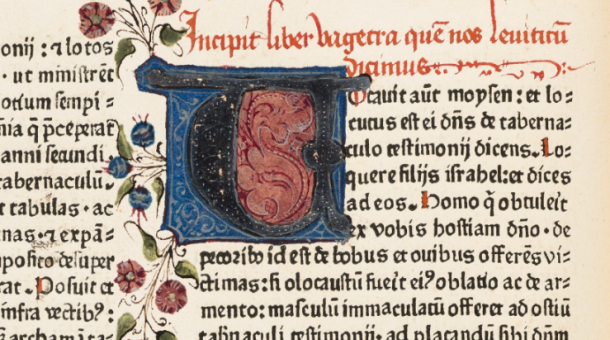 onij : ⁊ lotos
· ut ministrēt
otium sempi =
nia q̄ p̄ceperat
anni secundi
tabernaculū.
t tabulas · ac
nas · ⁊ expā=
posito desuper
rat . Posuit ⁊
infra vectib⁹ :
Incipit liber vagecra quē nos leuiticū
dicimus.
Vocauit aūt moysen : et lo=
cutus est ei dn̄s de taberna=
culo testimonij dicens. Lo=
quere filijs israhel: et dices
ad eos . Homo q̄ obtulerit
ex vobis hostiam dn̄o · de
pecorib⁹ id est de bobus et ouibus offerēs vi=
ctimas: si olocaustū fuerit ei⁹ oblatio ac de ar=
mento: masculū immaculatū offeret ad ostiū
tabnaculi testimonij· ad placandū sibi dn̄m